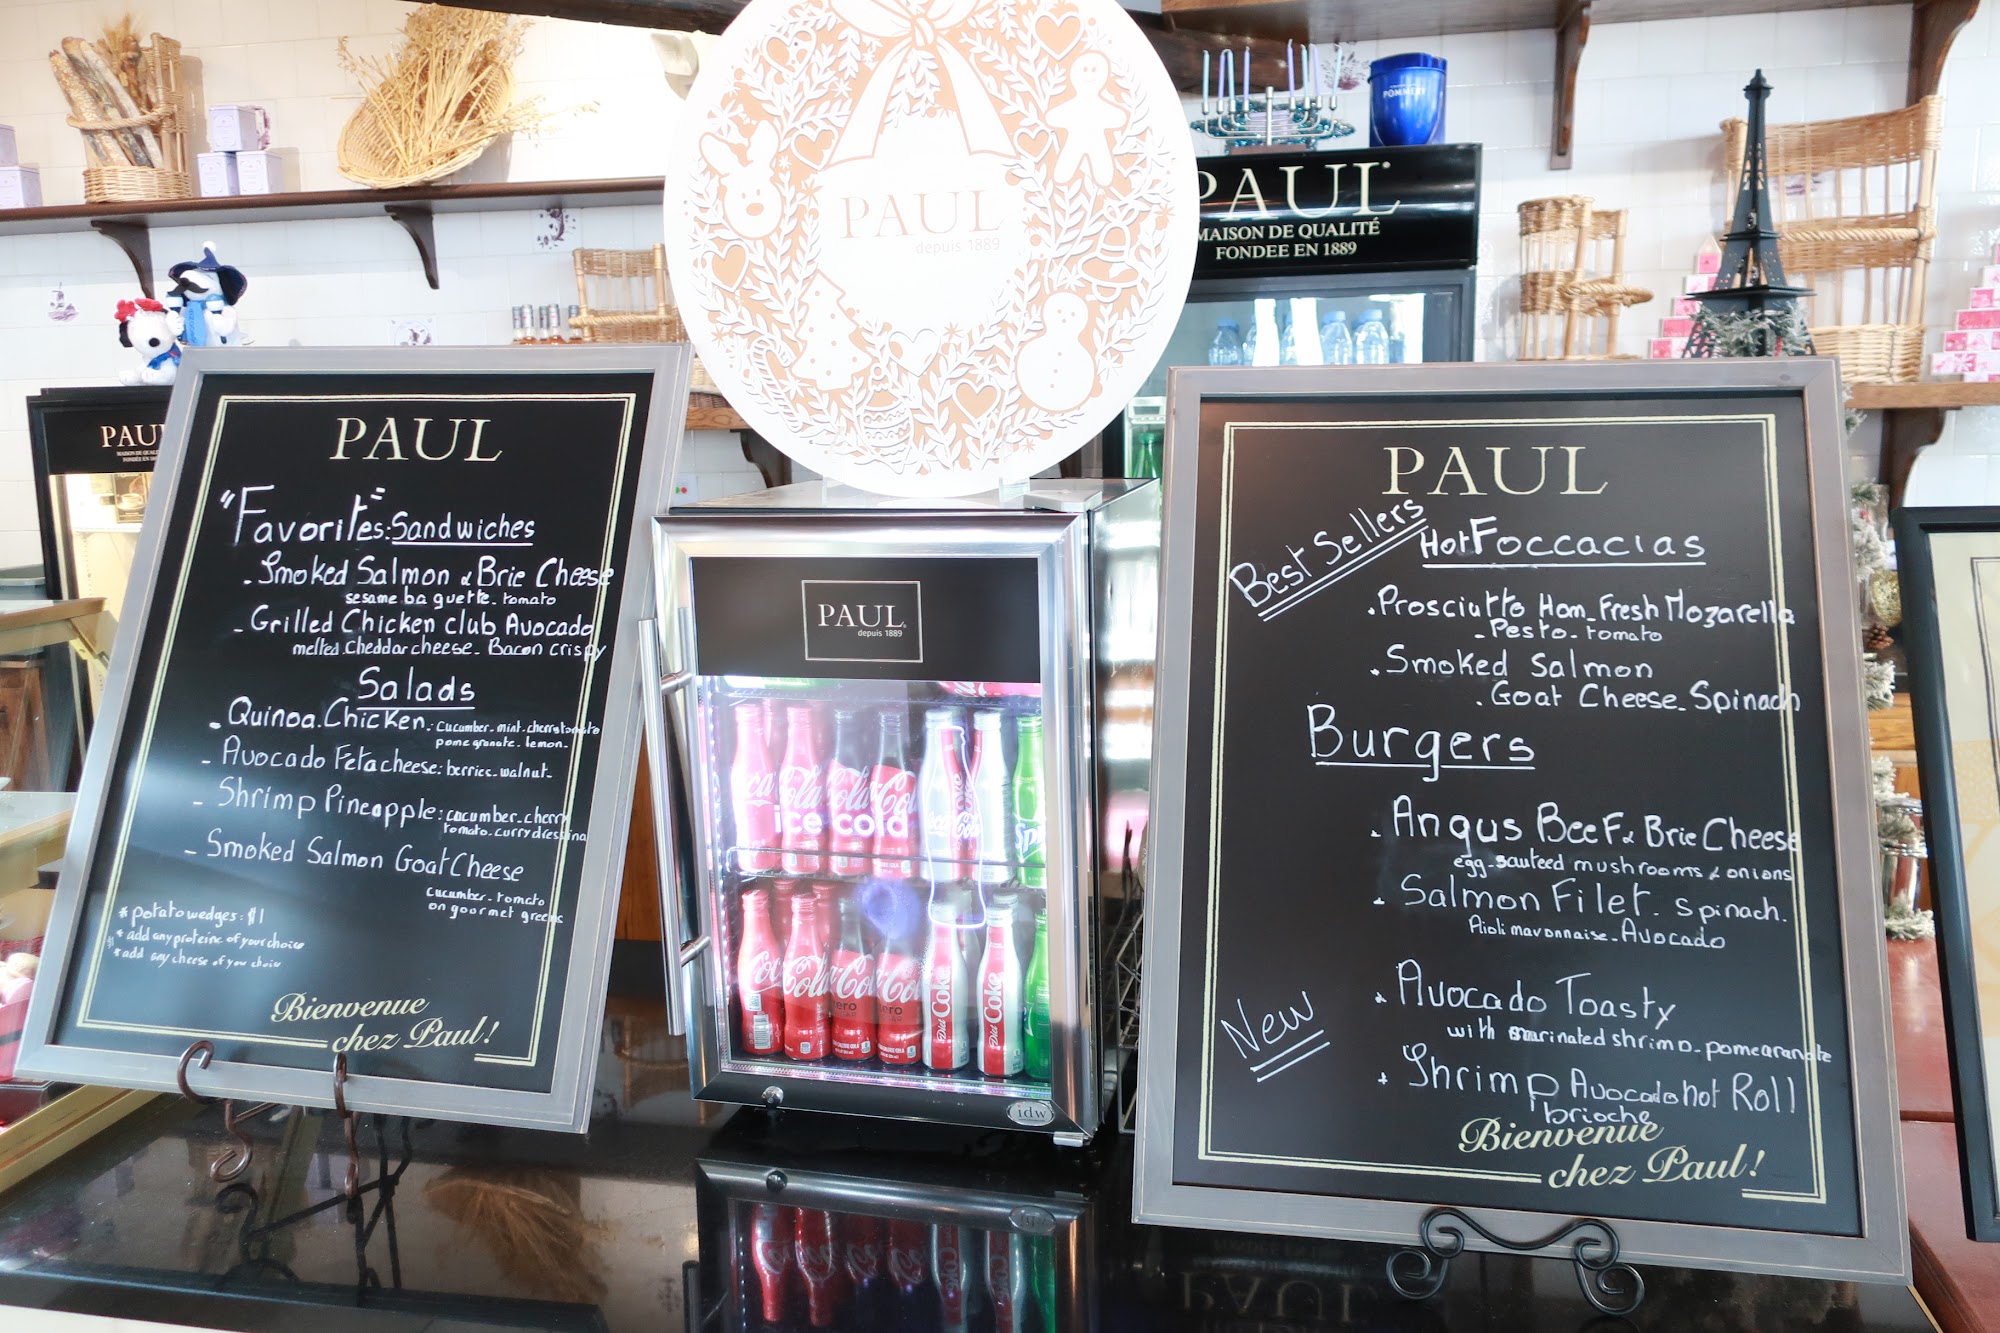 PAUL
"Favorites": Sandwiches
- Smoked Salmon & Brie Cheese
sesame baguette - tomato
- Grilled Chicken club Avocado
melted cheddar cheese - Bacon crispy
Salads
- Quinoa - Chicken: cucumber - mint - cherry tomato
pomegranate - lemon -
- Avocado Feta cheese: berries - walnut -
- Shrimp Pineapple: cucumber - cherry
tomato - curry dressing
- Smoked Salmon Goat Cheese
cucumber - tomato
on gourmet greens
* potato wedges: $1
* add any proteine of your choice
* add any cheese of your choice
Bienvenue
chez Paul!
PAUL
depuis 1889
PAUL
MAISON DE QUALITÉ
FONDEE EN 1889
POMMERY
PAUL
PAUL
depuis 1889
ice cold
Coca Cola
Diet Coke
zero
idw
PAUL
Best Sellers
Hot Foccacias
. Prosciutto Ham - Fresh Mozarella
- Pesto - tomato
. Smoked Salmon
. Goat Cheese - Spinach
Burgers
. Angus Beef & Brie Cheese
egg - sauteed mushrooms & onions
. Salmon Filet - Spinach.
Aioli mayonnaise - Avocado
New
. Avocado Toasty
with marinated shrimp - pomegranate
. Shrimp Avocado Hot Roll
brioche
Bienvenue
chez Paul!